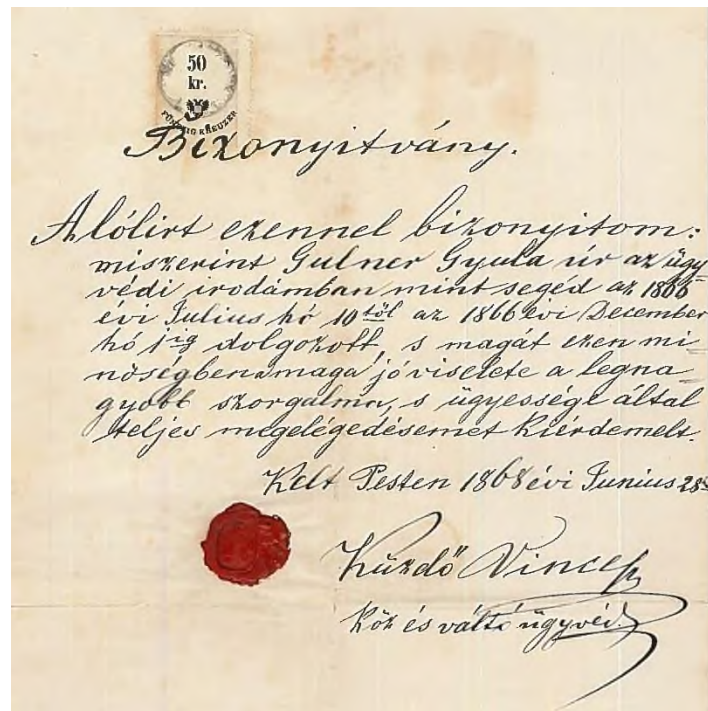 50
kr.
FÜNFZIG KREUZER
Bizonyitvány.
Alólirt ezennel bizonyitom:
miszerint Gulner Gyula úr az ügy=
védi irodámban mint segéd az 1866
évi Julius hó 10től az 1866 évi December
hó 1ig dolgozott, s magát ezen mi=
nőségben maga jó viselete a legna=
gyobb szorgalma, s ügyessége által
teljes megelégedésemet kiérdemelt.
Kelt Pesten 1868 évi Junius 28
Küzdő Vince
köz és váltó ügyvéd.